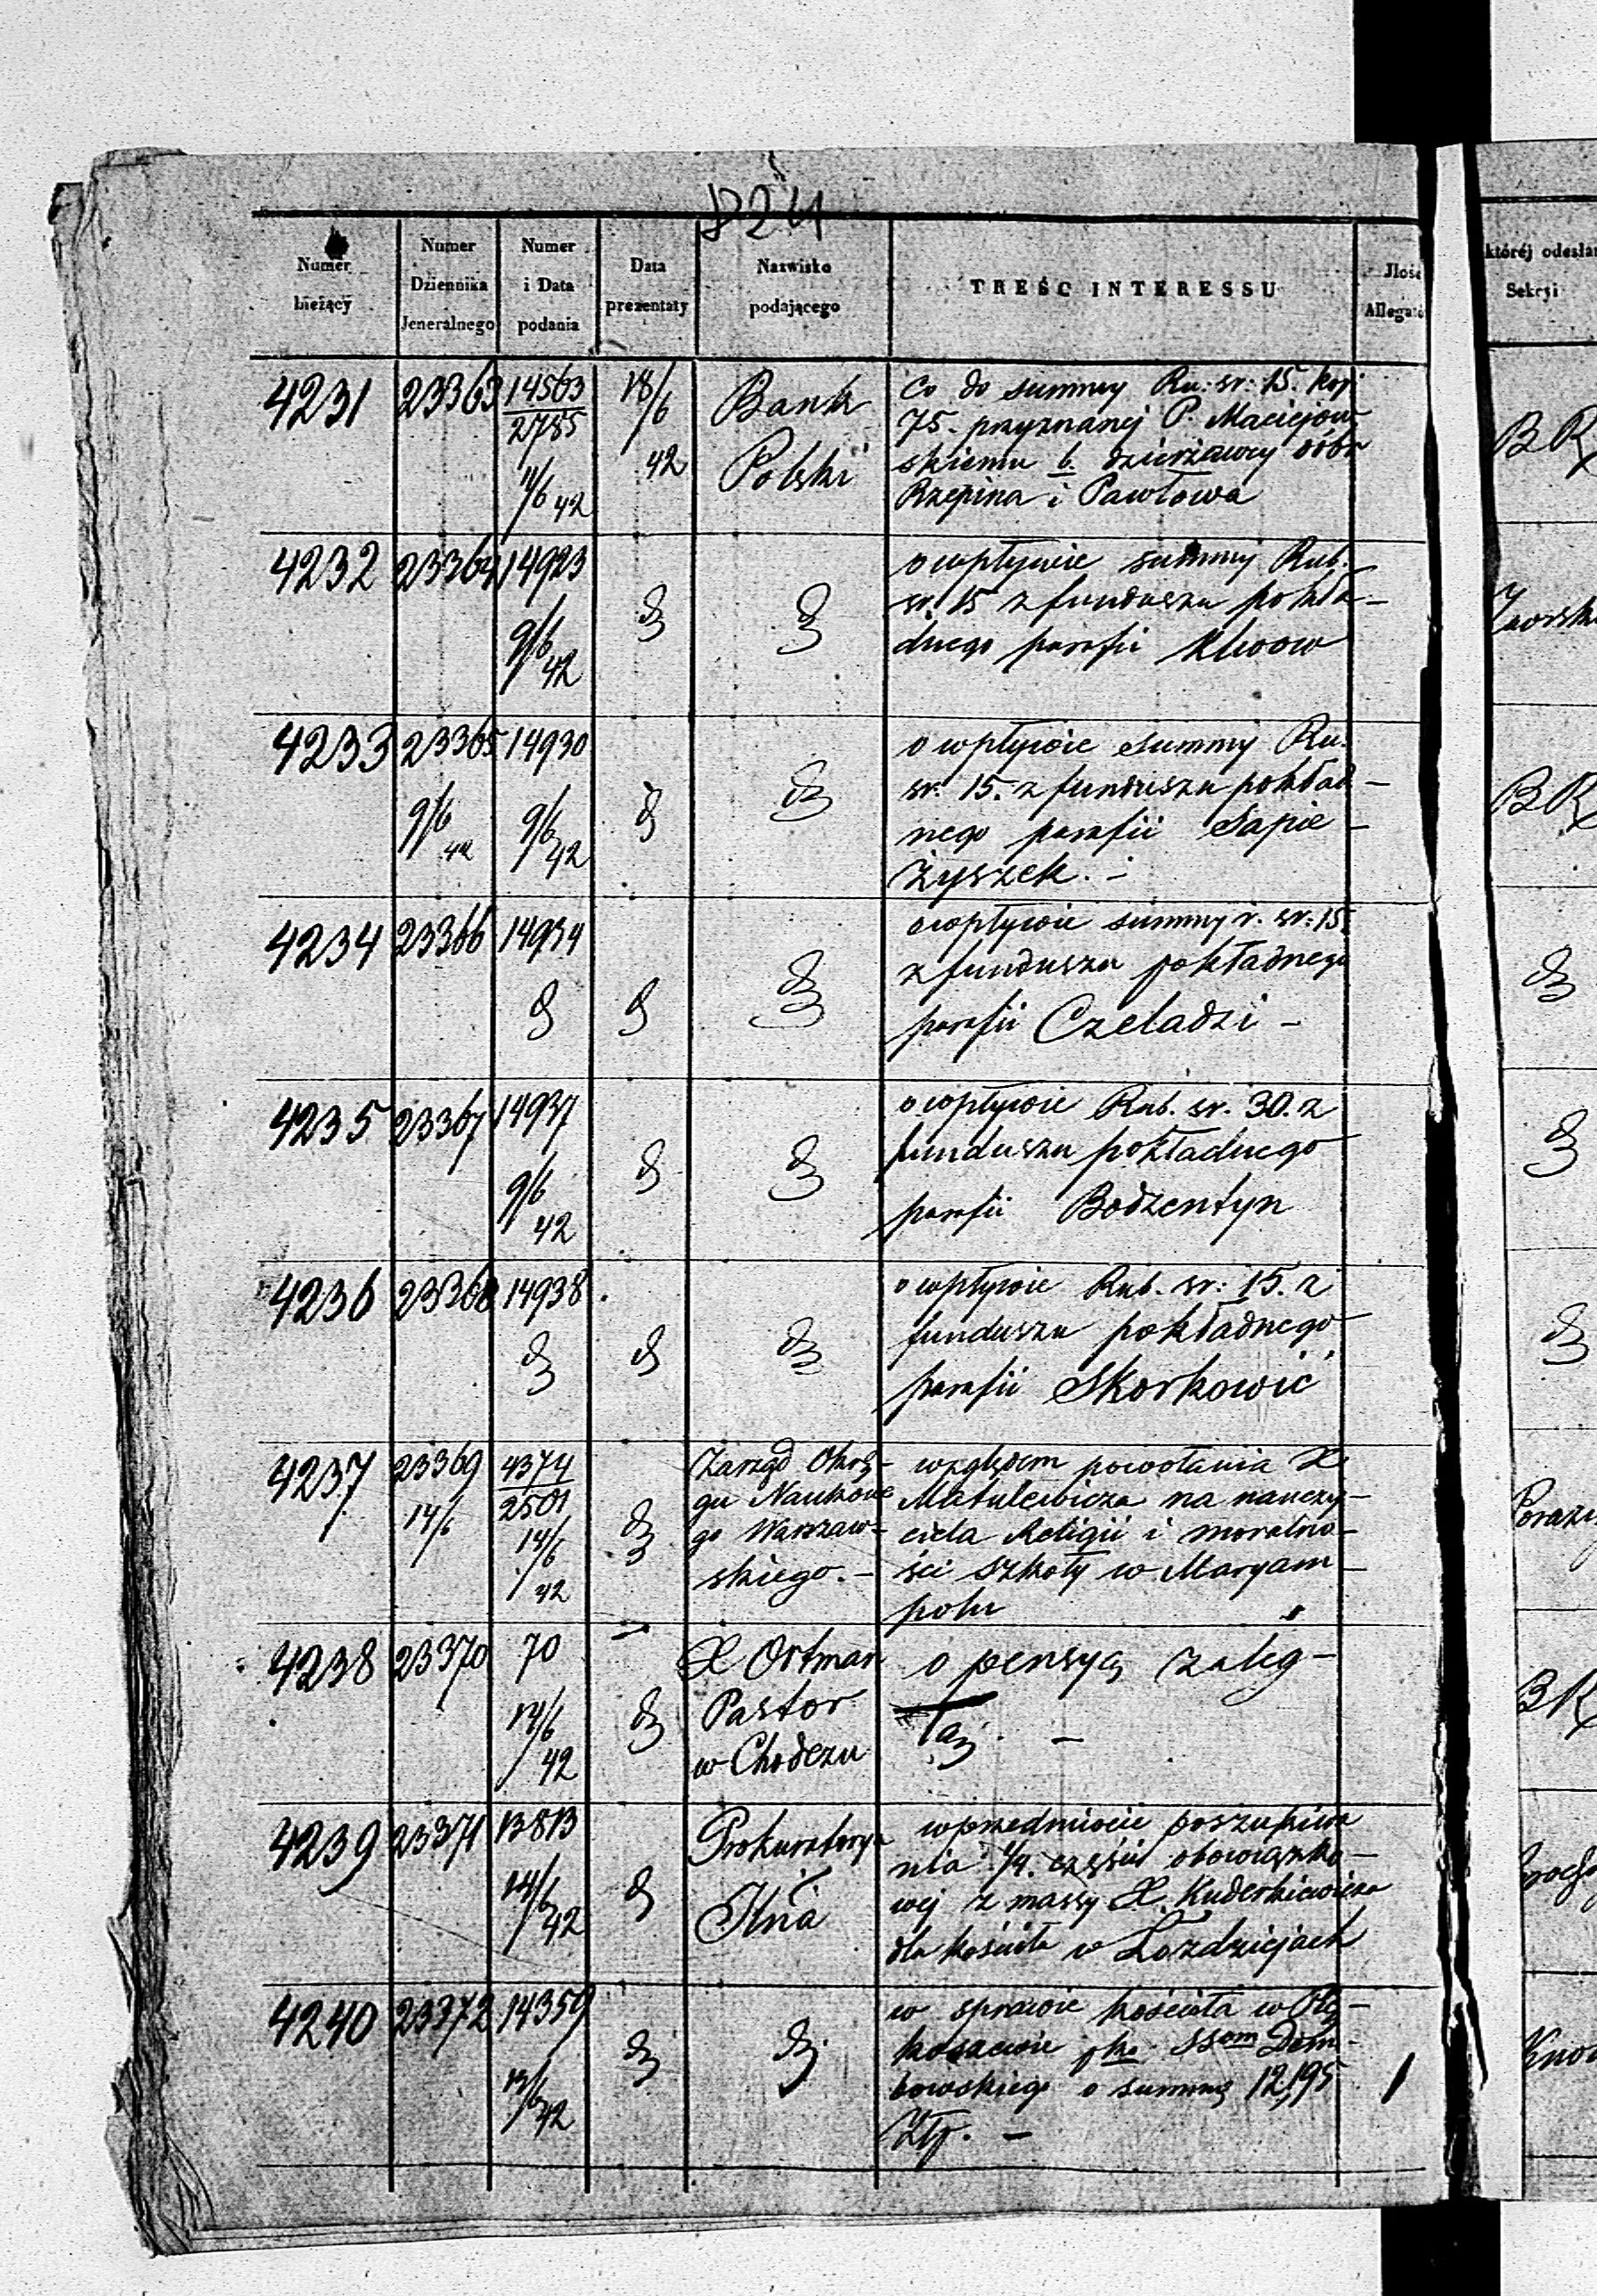 824
Numer bieżący
Numer Dziennika Jeneralnego
Numer i Data podania
Data prezentaty
Nazwisko podającego
TREŚĆ INTERESSU
Jlość
którój
Sekcyi
4231
23363
14563
2785
11/6 42
18/6
42
Bank
Polski
Co do summy Ru: sr: 15. kop:
75. przyznanej P. Maciejow
skiemu b. dzierżawcy dóbr
Rzepina i Pawłowa
BR
4232
23364
14923
9/6 42
o wpływie summy Rub.
sr. 15 z funduszu pokła-
dnego parafii Klwow
4233
23365
9/6 42
14930
9/6 42
o wpływie summy Ru.
sr. 15. z funduszu pokład-
nego parafii Sapie-
żyszek. -
BR
4234
23366
14934
o wpływie summy r. sr: 15.
z funduszu pokładnego
parafii Czeladzi -
4235
23367
14937
9/6 42
o wpływie Rub. sr. 30. z
funduszu pokładnego
parafii Bodzentyn
4236
23368
14938
o wpływie Rub. sr: 15. z
funduszu pokładnego
parafii Skorkowic
4237
23369
14/6
4374
2501
14/6 42
Zarząd Okrę-
gu Naukowe
go Warszaw-
skiego. -
względem powołania X.
Matulewicza na nauczy-
ciela Religii i moralno-
ści szkoły w Maryam-
polu
4238
23370
70
14/6 42
X Ortman
Pastor
w Chodczu
o pensyą zaleg-
łą. -
BR
4239
23371
13813
14/6 42
Prokuratorya
w przedmiocie poszukiwa
nia 1/4. części obowiązko-
wej z massy X. Kuderkiewicza
dla kościoła w Łozdziejach
4240
23372
14359
42
w sprawie kościoła w
pko SSom Dem-
bowskiego o summę 12,195
Złp. -
1